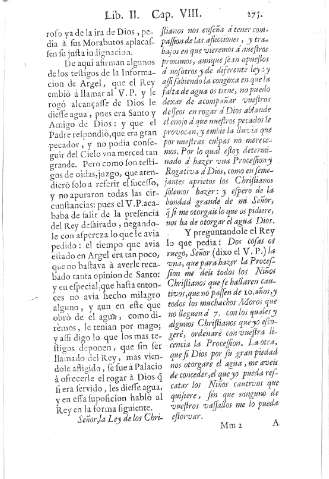 Lib. II. Cap. VIII. 275.
roso ya de la ira de Dios, pe-
dia à sus Morabutos aplacas-
sen su justa indignacion.
De aqui afirman algunos
de los testigos de la Informa-
cion de Argel, que el Rey
embiò à llamar al V. P. y le
rogò alcançasse de Dios le
diesse agua, pues era Santo y
Amigo de Dios: y que el
Padre respondiò, que era gran
pecador, y no podia conse-
guir del Cielo vna merced tan
grande. Pero como son testi-
gos de oidas, juzgo, que aten-
dierõ solo a referir el sucesso,
y no apuraron todas las cir-
cunstancias: pues el V. P. aca-
baba de salir de la presencia
del Rey desairado, negando-
le con aspereza lo que le avia
pedido: el tiempo que avia
estado en Argel era tan poco,
que no bastava à averle reca-
bado tanta opinion de Santo:
y en especial, que hasta enton-
ces no avia hecho milagro
alguno, y aun en este que
obrò de el agua, como di-
rèmos, le tenian por mago;
y assi digo lo que los mas te-
stigos deponen, que sin ser
llamado del Rey, mas vien-
dole afligido, se fue a Palacio
à ofrecerle el rogar à Dios q̃
si era servido, les diesse agua,
y en essa suposicion hablò al
Rey en la forma siguiente.
Señor, la Ley de los Chri-
stianos nos enseña à tener com-
passion de las aflicciones, y tra-
bajos en que vieremos à nuestros
proximos, aunque sean opuestos
à nosotros y de diferente ley: y
assi sabiendo la congoxa en que la
falta de agua os tiene, no puedo
dexar de acompañar vuestros
deseos en rogar à Dios ablande
el enojo à que nuestros pecados le
provocan, y embie la lluvia que
por nuestras culpas no merece-
mos. Por lo qual estoy determi-
nado à hazer vna Procession y
Rogativa à Dios, como en seme-
jantes aprietos los Christianos
suelemos hazer: y espero de la
bondad grande de mi Señor,
q̃ si me otorgais lo que os pidiere,
nos ha de otorgar el agua.
Y preguntandole el Rey
lo que pedia: Dos cosas os
ruego, Señor (dixo el V. P.) la
vna, que para hazer la Proces-
sion me deis todos los Niños
Christianos que se hallaren cau-
tivos, que no passen de 10. años, y
todos los muchachos Moros que
no lleguen à 7. con los quales y
algunos Christianos que yo esco-
gerè, ordenarè con vuestra li-
cencia la Procession. La otra,
que si Dios por su gran piedad
nos otorgare el agua, me aveis
de conceder, el que yo pueda res-
catar los Niños cautivos que
quisiere, sin que ninguno de
vuestros vassallos me lo pueda
estorvar.
Mm 2 A